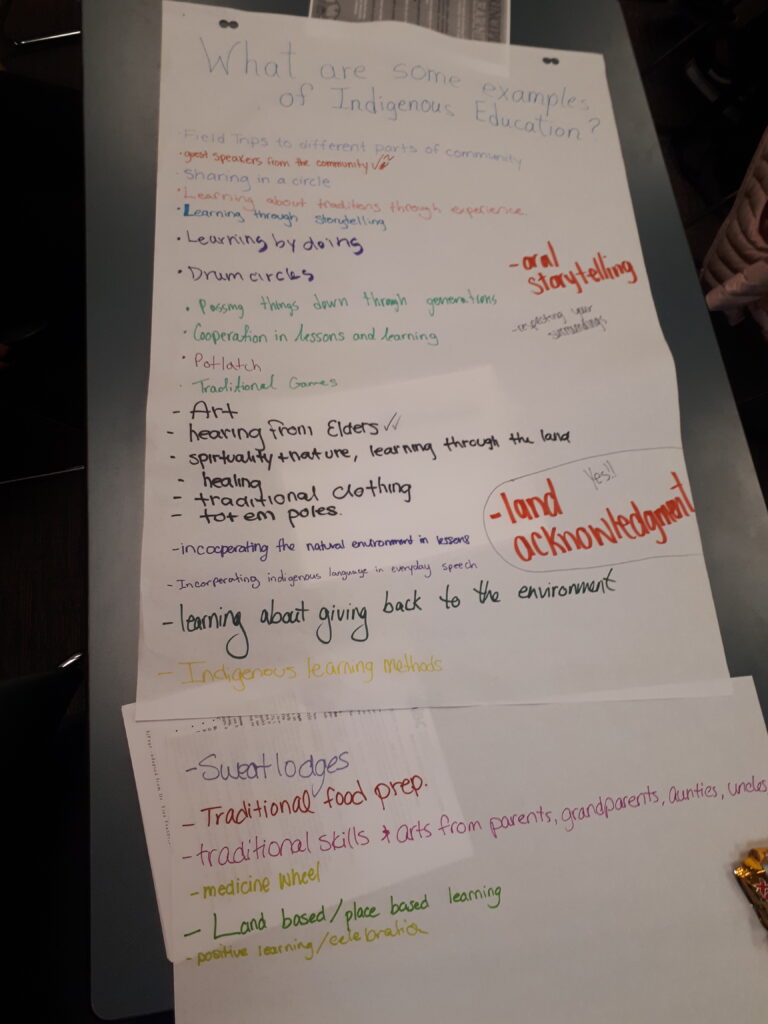 What are some examples
of Indigenous Education?
· Field Trips to different parts of community
· guest speakers from the community
· Sharing in a circle
· Learning about traditions through experience
· Learning through storytelling
· Learning by doing
· Drum circles
- oral
storytelling
· Passing things down through generations
- respecting your
surroundings
· Cooperation in lessons and learning
· Potlatch
· Traditional Games
- Art
- hearing from Elders
- spirtuality + nature, learning through the land
- healing
- traditional clothing
- totem poles.
Yes!!
- land
acknowledgment
- incooperating the natural environment in lessons
- Incorperating indigenous language in everyday speech
- learning about giving back to the environment
- Indigenous learning methods
- Sweatlodges
- Traditional food prep.
- traditional skills & arts from parents, grandparents, aunties, uncles
- medicine wheel
- Land based/place based learning
- positive learning/celebration